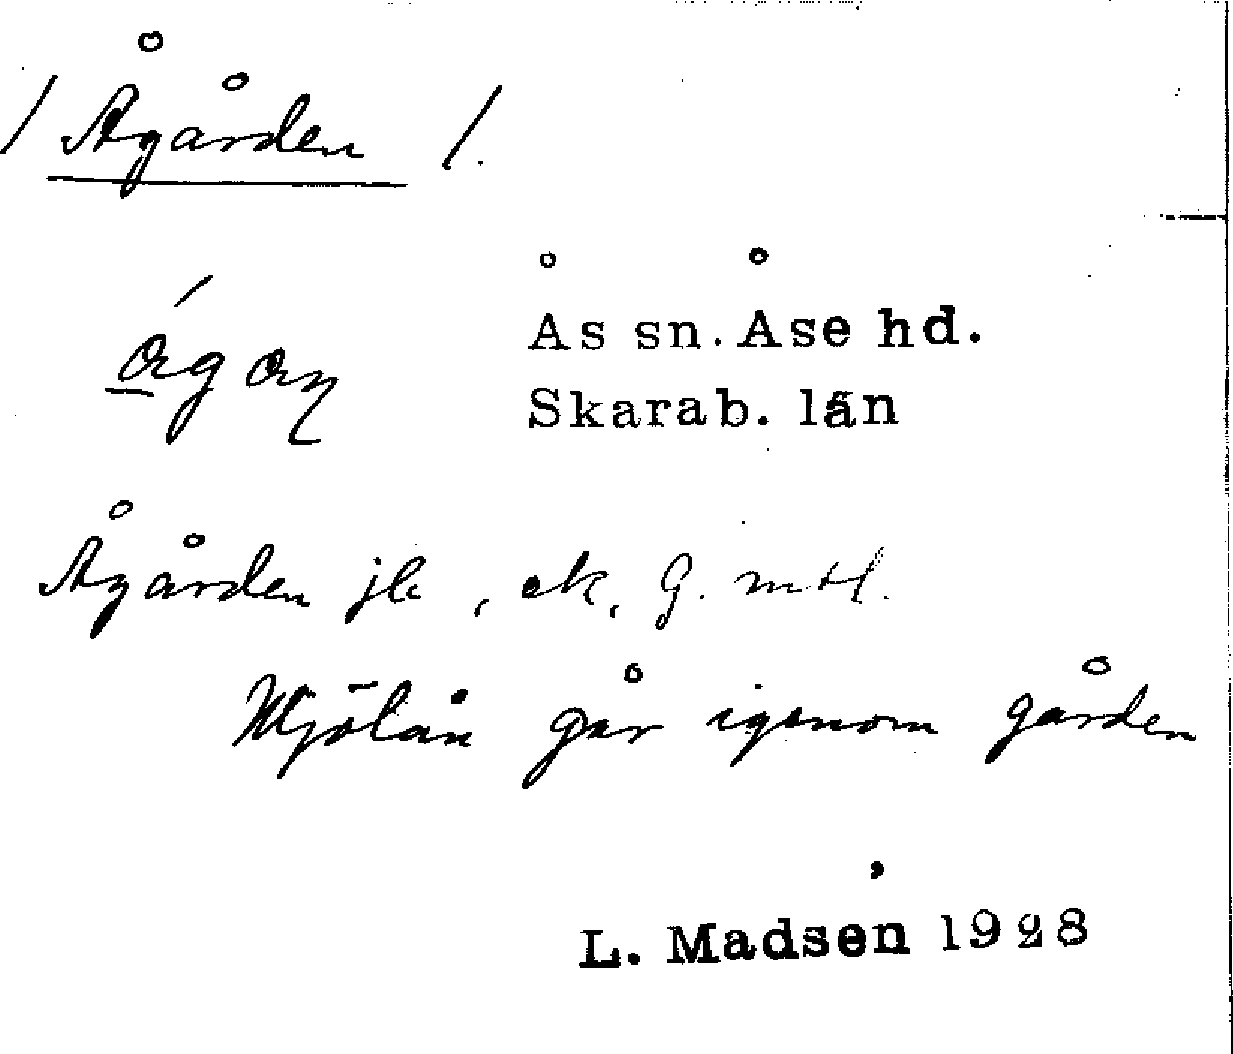 / Ågården /.
Ås sn. Åse hd.
Skarab. län
Ågården jb, ek, G. mtl.
Mjölån går igenom gården
L. Madsen 1928